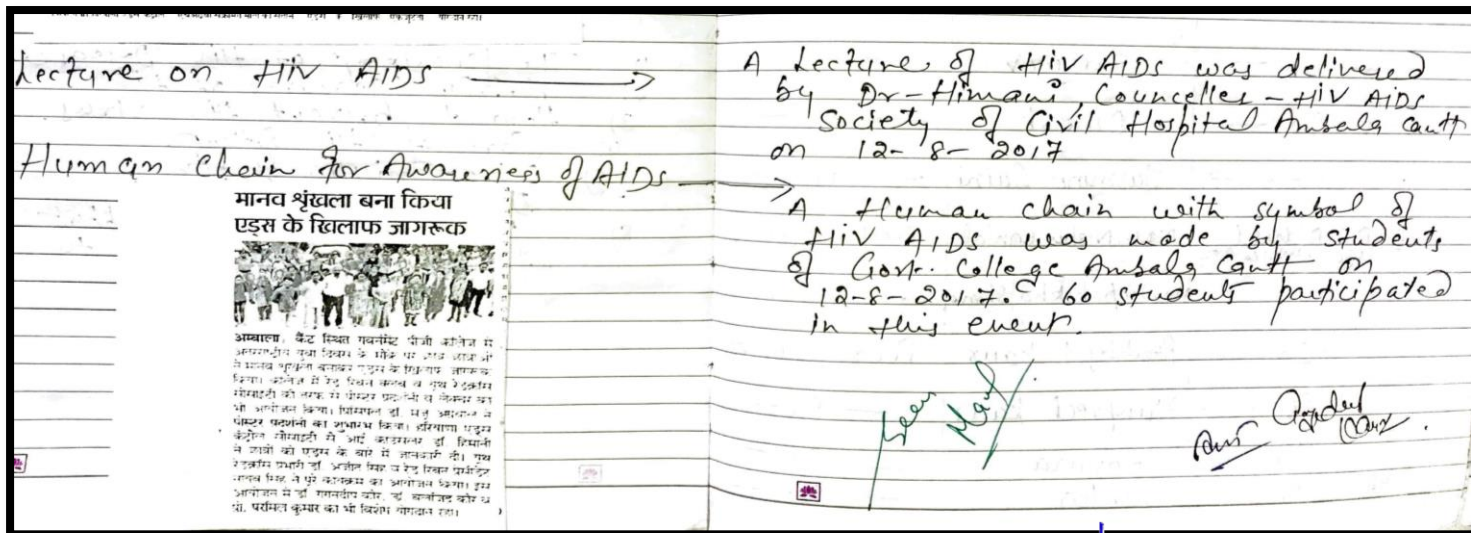 Lecture on HIV AIDS
Human Chain for Awareness of AIDs
मानव श्रृंखला बना किया
एड्स के खिलाफ जागरूक
अम्बाला, कैंट स्थित गवर्नमेंट पीजी कॉलेज में
अन्तरराष्ट्रीय युवा दिवस के मौके पर
ने मानव श्रृंखला बनाकर एड्स के खिलाफ जागरूक
किया। कॉलेज में रेड रिबन क्लब व यूथ रेडक्रॉस
सोसाइटी की तरफ से पोस्टर प्रदर्शनी व लेक्चर का
भी आयोजन किया। प्रिंसिपल डॉ. ने
पोस्टर प्रदर्शनी का शुभारंभ किया। हरियाणा एड्स
कंट्रोल सोसाइटी से आई काउंसलर डॉ हिमानी
ने छात्रों को एड्स के बारे में जानकारी दी। यूथ
रेडक्रॉस प्रभारी डॉ. अजीत सिंह व रेड रिबन
सिंह ने पूरे कार्यक्रम का आयोजन किया। इस
आयोजन में डॉ गगनदीप कौर, डॉ कौर व
प्रो. परमिल कुमार का भी विशेष योगदान रहा।
A Lecture of HIV AIDS was delivered
by Dr-Himani, Counceller - HIV AIDS
Society of Civil Hospital Ambala Cantt
on 12-8-2017
A Human chain with symbol of
HIV AIDS was made by students
of Govt. College Ambala Cantt on
12-8-2017. 60 students participated
in this event.